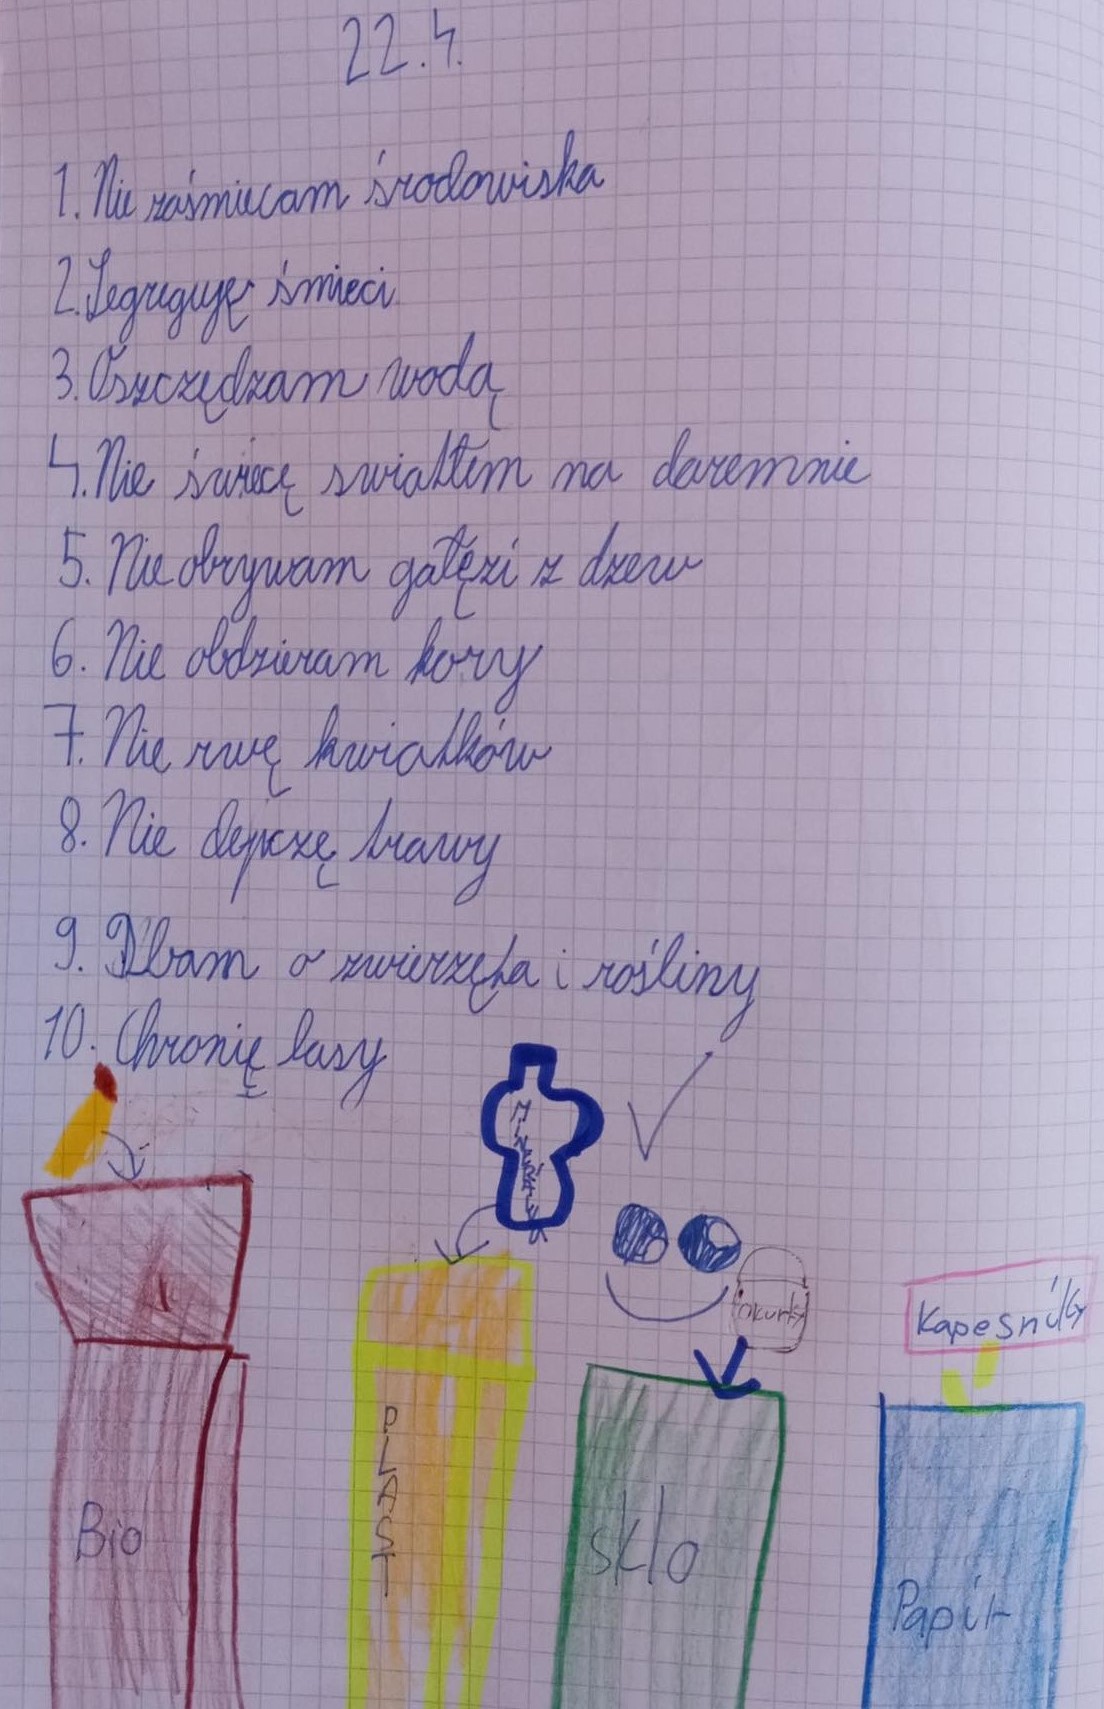 22.4.
1. Nie zaśmiecam środowiska
2. Segreguję śmieci
3. Oszczędzam wodą
4. Nie świecę swiatłem na daremnie
5. Nie obrywam gałęzi z dzew
6. Nie obdzieram kory
7. Nie rwę kwiatków
8. Nie depczę trawy
9. Dbam o zwierzęta i rośliny
10. Chronię lasy
okurky
Kapesníky
Bio
PLAST
sklo
Papír